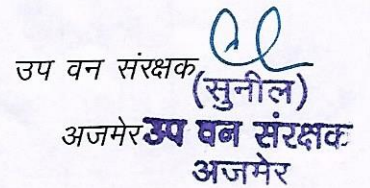 उप वन संरक्षक
(सुनील)
अजमेर उप वन संरक्षक
अजमेर